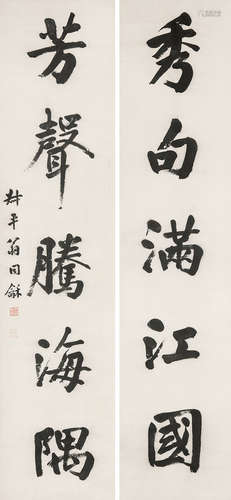 秀句滿江國
芳聲騰海隅
叔平翁同龢